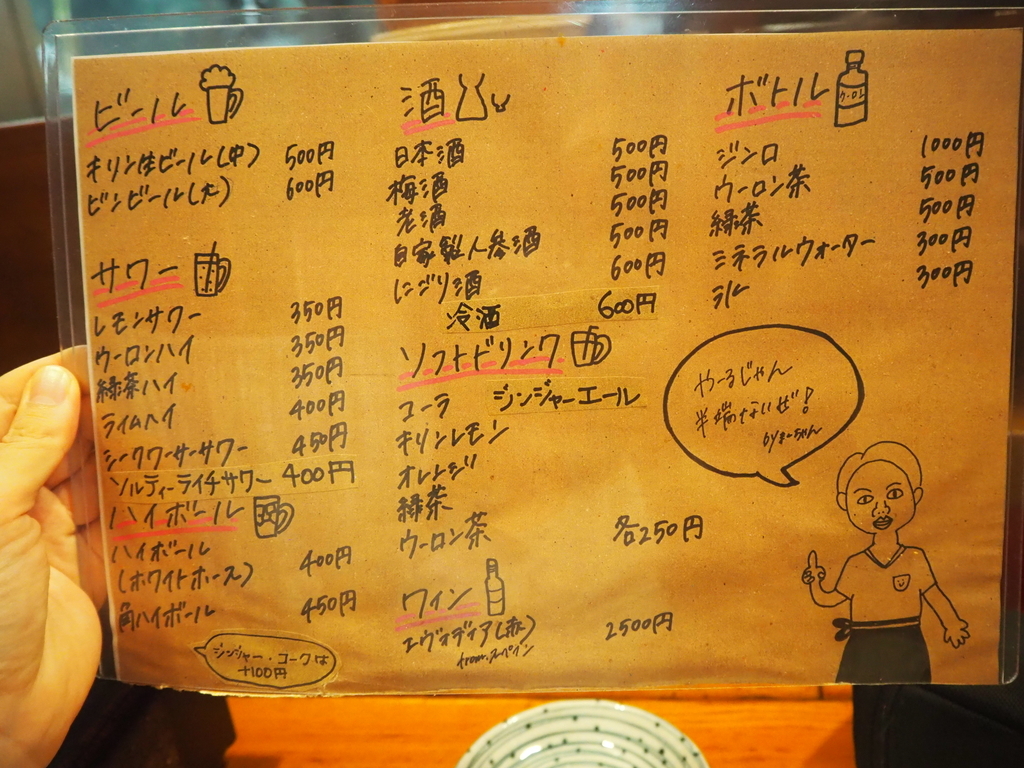 ビール
キリン生ビール(中) 500円
ビンビール(大) 600円
サワー
レモンサワー 350円
ウーロンハイ 350円
緑茶ハイ 350円
ライムハイ 400円
シークワーサーサワー 450円
ソルティーライチサワー 400円
ハイボール
ハイボール
(ホワイトホース) 400円
角ハイボール 450円
ジンジャー・コークは
+100円
酒
日本酒 500円
梅酒 500円
老酒 500円
自家製人参酒 500円
にごり酒 600円
冷酒 600円
ソフトドリンク
コーラ ジンジャーエール
キリンレモン
オレンジ
緑茶
ウーロン茶 各250円
ワイン
エヴォディア(赤) 2500円
from.スペイン
ボトル
ジンロ 1000円
ウーロン茶 500円
緑茶 500円
ミネラルウォーター 300円
300円
やーるじゃん
半端ないぜ!
byまーちゃん